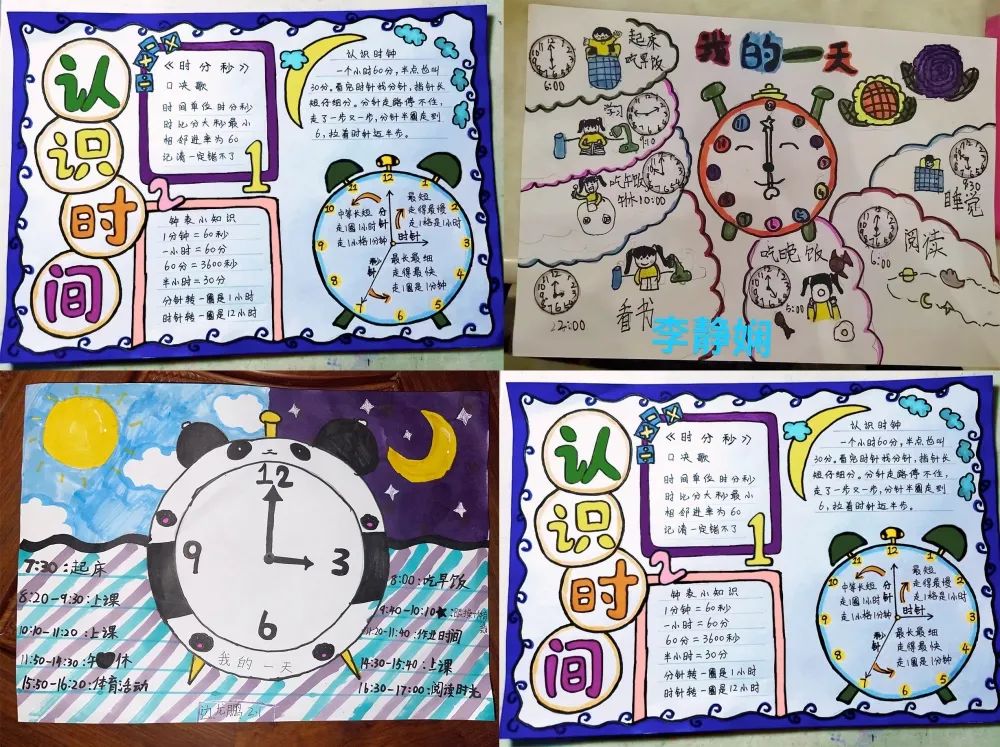 认识时间
《时分秒》
口决歌
时间单位时分秒
时比分大秒最小
相邻进率为60
记清一定错不了
1
认识时钟
一个小时60分,半点也叫
30分。看完时针找分针,指针长
短仔细分。分针走路停不住,
走了一步又一步,分针半圈走到
6,拉着时针迈半步。
2
钟表小知识
1分钟=60秒
一小时=60分
60分=3600秒
半小时=30分
分针转一圈是1小时
时针转一圈是12小时
12
1
2
3
4
5
6
7
8
9
10
11
中等长短 分针
走1圈1小时
走1小格1分钟
最短
走得最慢
走1格是1小时
时针
秒针
最长最细
走得最快
走1圈是1分钟
我的一天
起床
吃早饭
6:00
学习
9:10
吃午饭
10:00
看书
22:00
吃晚饭
5:00
阅读
6:00
9:30
睡觉
李静娴
12
3
6
9
我的一天
7:30:起床
8:20-9:30:上课
10:10-11:20:上课
11:50-14:30:午休
15:50-16:20:体育活动
8:00:吃早饭
9:40-10:10
11:20-11:40:作业时间
14:30-15:40:上课
16:30-17:00:阅读时光
认识时间
《时分秒》
口决歌
时间单位时分秒
时比分大秒最小
相邻进率为60
记清一定错不了
1
认识时钟
一个小时60分,半点也叫
30分。看完时针找分针,指针长
短仔细分。分针走路停不住,
走了一步又一步,分针半圈走到
6,拉着时针迈半步。
2
钟表小知识
1分钟=60秒
一小时=60分
60分=3600秒
半小时=30分
分针转一圈是1小时
时针转一圈是12小时
12
1
2
3
4
5
6
7
8
9
10
11
中等长短 分针
走1圈1小时
走1小格1分钟
最短
走得最慢
走1格是1小时
时针
秒针
最长最细
走得最快
走1圈是1分钟